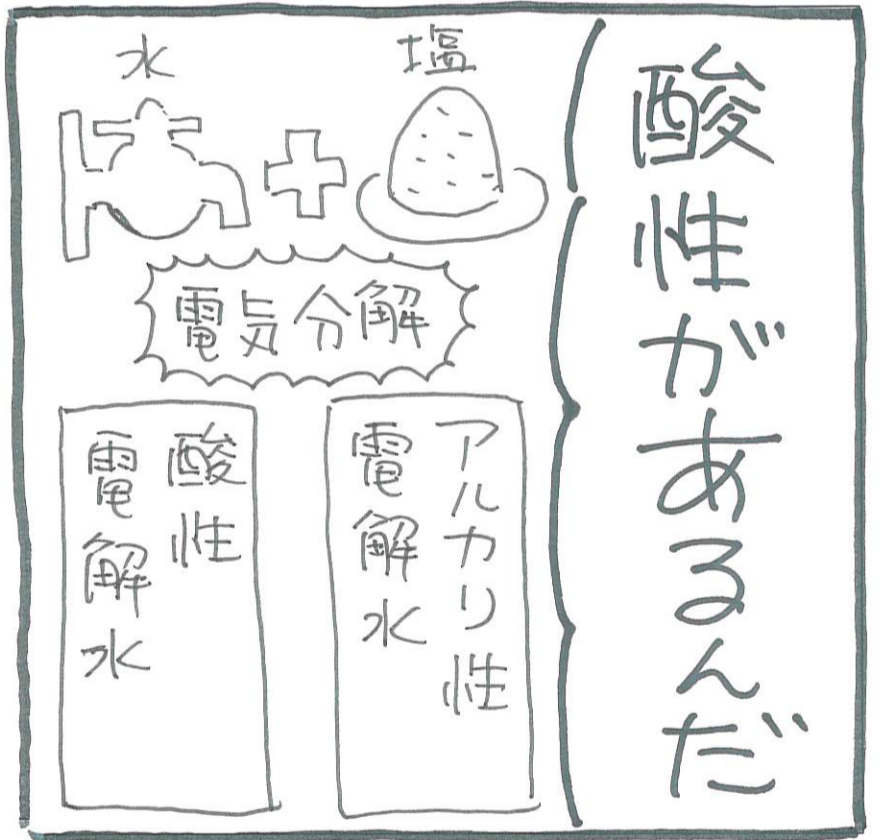 酸性があるんだ
水
塩
電気分解
アルカリ性
電解水
酸性
電解水